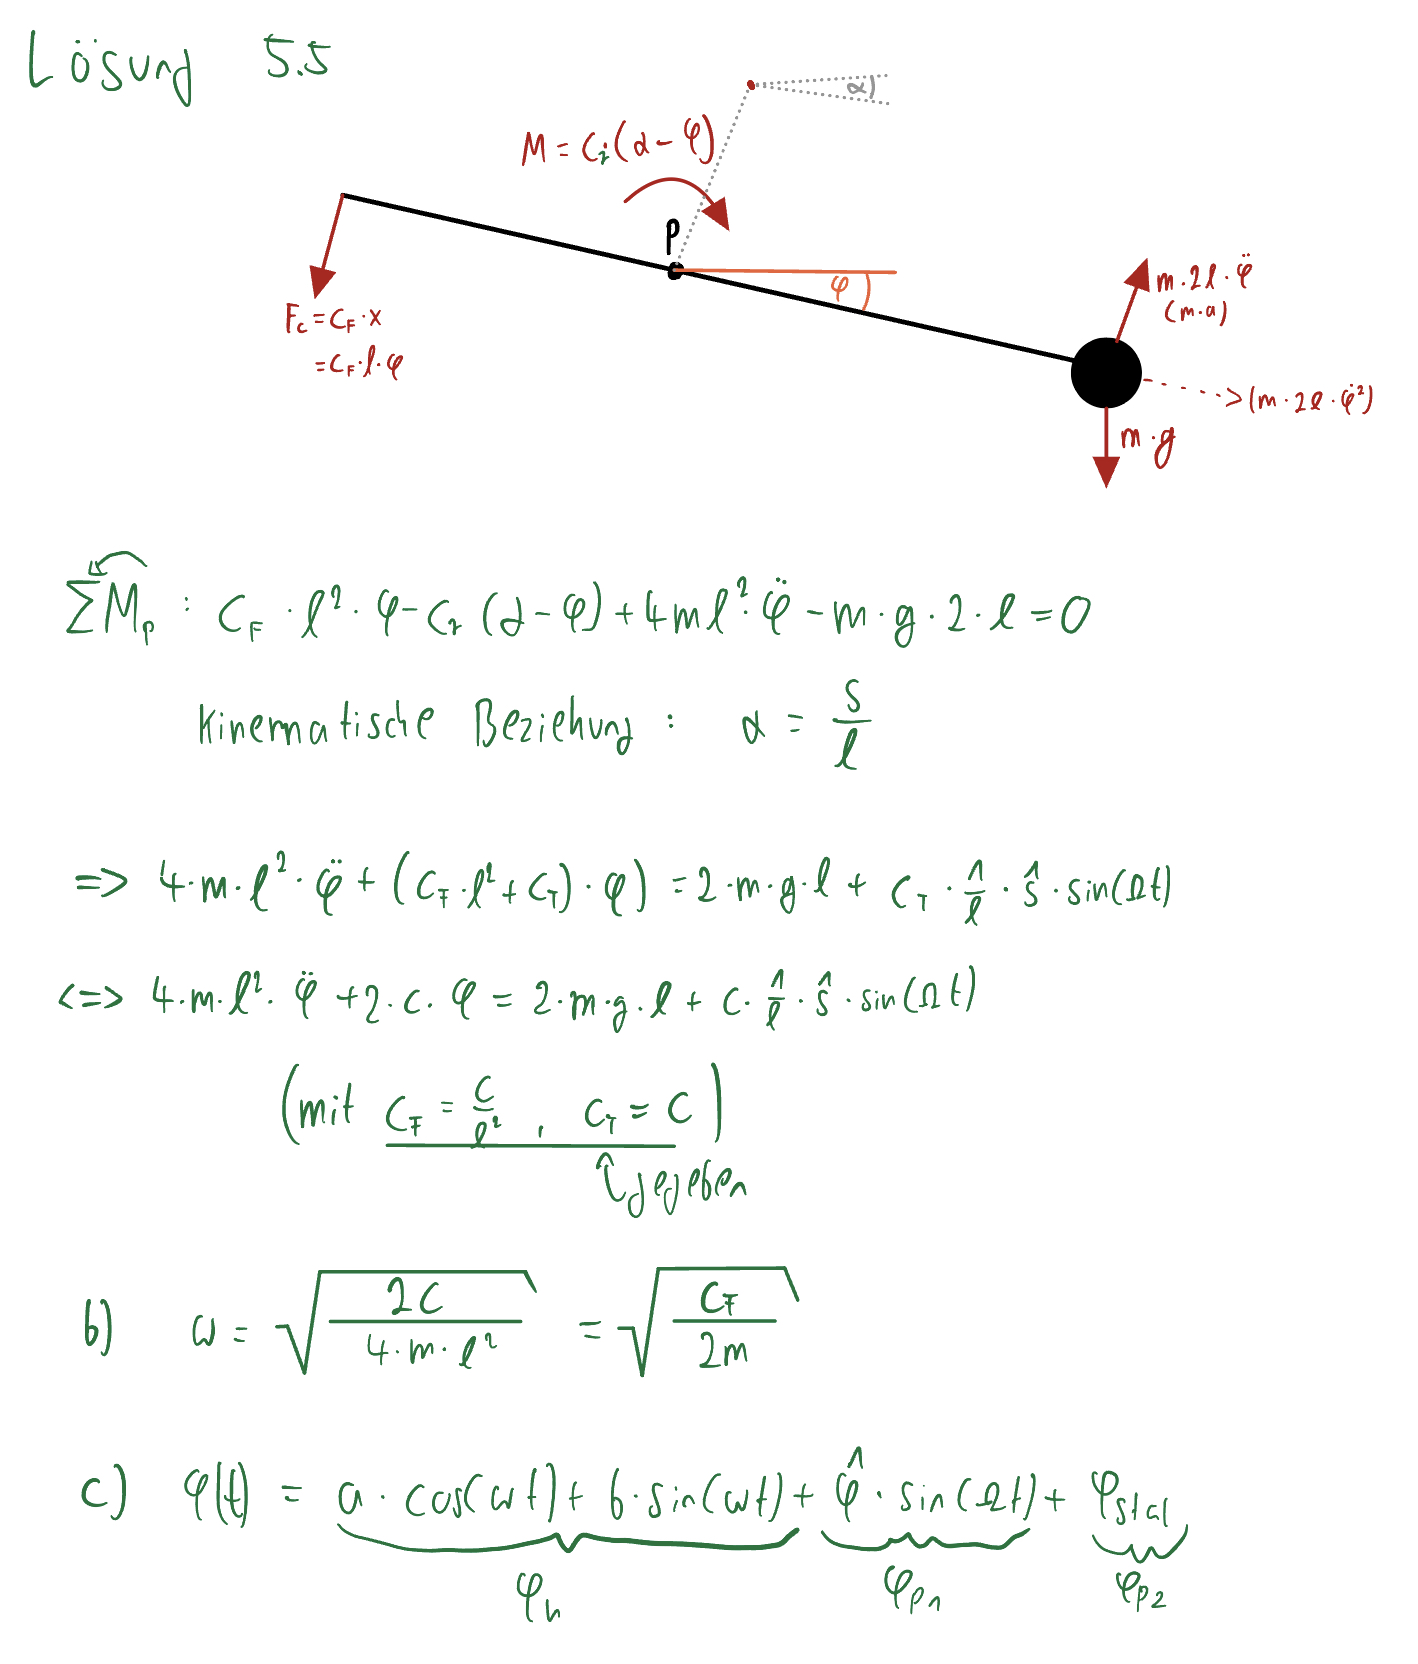 Lösung 5.5
α
M = C₂(α - φ)
P
φ
m · 2l · φ̈
(m·a)
F_c = C_F · x
= C_F · l · φ
(m · 2l · φ̇²)
m · g
ΣM_P : C_F · l² · φ - C₂ (α - φ) + 4ml² · φ̈ - m · g · 2 · l = 0
Kinematische Beziehung : α = s/l
=> 4·m·l² · φ̈ + (C_F · l² + C_T) · φ) = 2·m·g·l + C_T · 1/l · ŝ · sin(Ωt)
<=> 4·m·l² · φ̈ + 2·c·φ = 2·m·g·l + c · 1/l · ŝ · sin(Ωt)
(mit C_F = c/l² , C_T = C)
gegeben
b) ω = √(2C/(4·m·l²)) = √(C_F/(2m))
c) φ(t) = a · cos(ωt) + b · sin(ωt) + φ̂ · sin(Ωt) + φ_stat
φ_h φ_p1 φ_p2